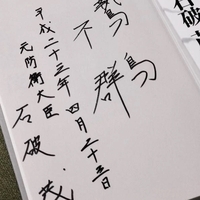 鷙鳥
不群
平成二十三年四月二十三日
元防衛大臣
石破茂
石破